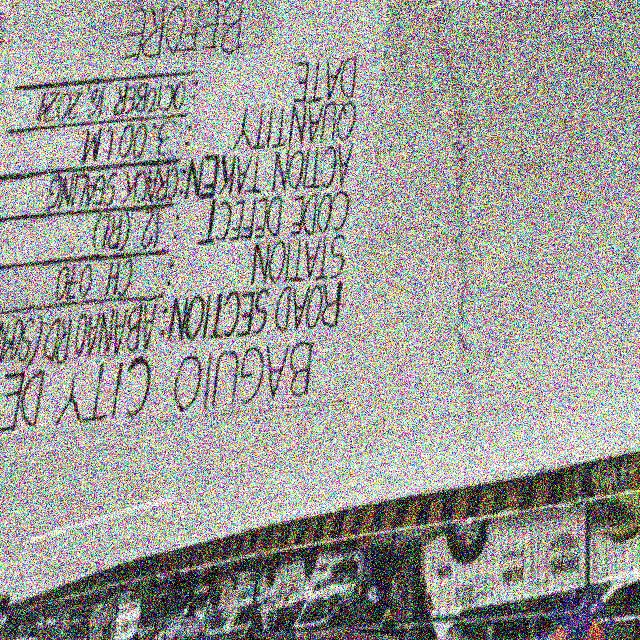 BAGUIO CITY DE
ROAD SECTION: ABANAO RD
STATION : CH 070
CODE DEFECT : 12
ACTION TAKEN: CRACK SEALING
QUANTITY : 3.00 LM
DATE : OCTOBER 16,
BEFORE